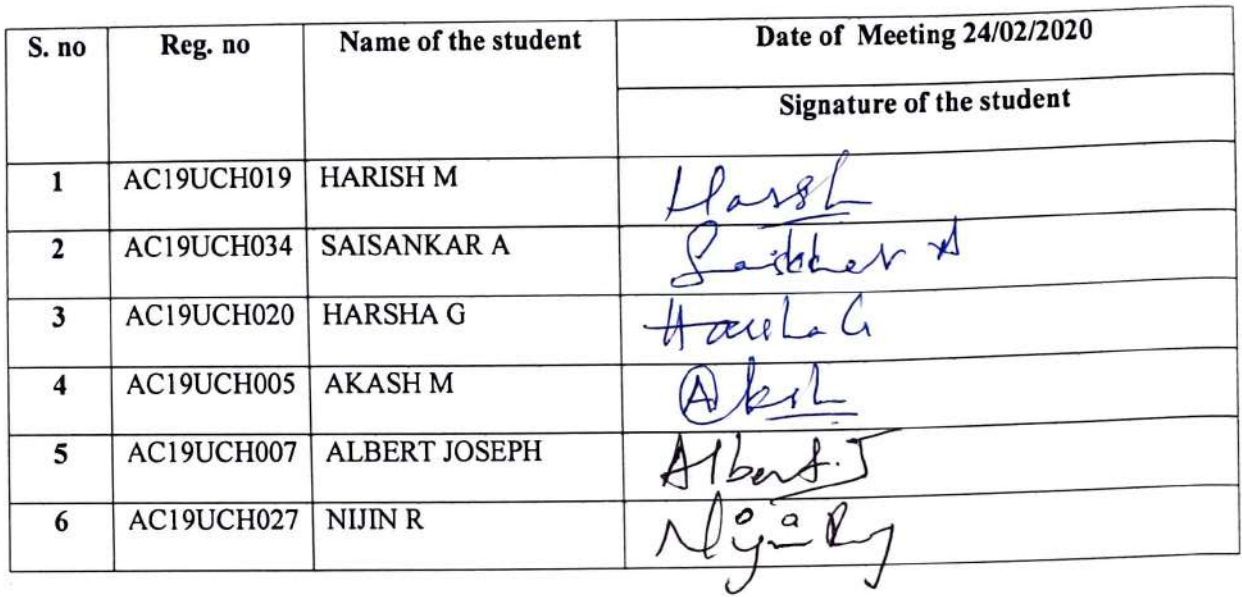 S. no Reg. no Name of the student Date of Meeting 24/02/2020
Signature of the student
1 AC19UCH019 HARISH M
2 AC19UCH034 SAISANKAR A
3 AC19UCH020 HARSHA G Harsha G
4 AC19UCH005 AKASH M
5 AC19UCH007 ALBERT JOSEPH Albert.J
6 AC19UCH027 NIJIN R